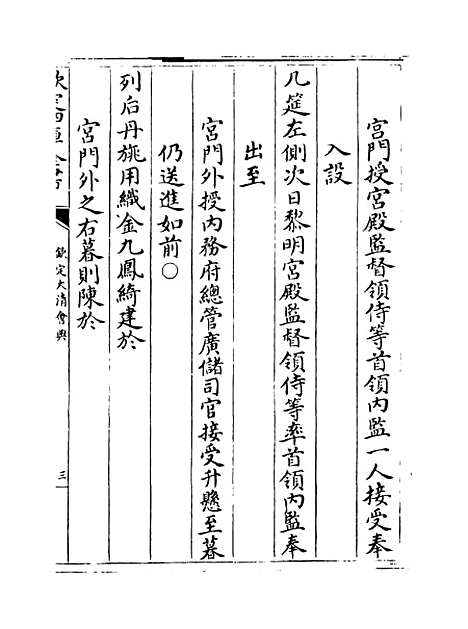 宮門授宮殿監督領侍等首領內監一人接受奉
入設
几筵左側次日黎明宮殿監督領侍等率首領內監奉
出至
宮門外授內務府總管廣儲司官接受升懸至暮
仍送進如前〇
列后丹旐用織金九鳳綺建於
宮門外之右暮則陳於
欽定四庫全書
欽定大清會典
三